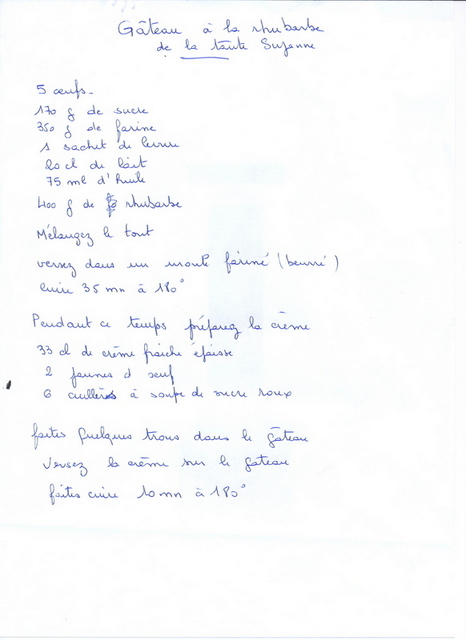 Gâteau à la rhubarbe
de la tante Suzanne
5 œufs.
170 g de sucre
350 g de farine
1 sachet de levure
20 cl de lait
75 ml d'huile
400 g de rhubarbe
Mélangez le tout
versez dans un moule fariné (beurré)
cuire 35 mn à 180°
Pendant ce temps préparez la crème
33 cl de crème fraiche épaisse
2 jaunes d œuf
6 cuillères à soupe de sucre roux
faites quelques trous dans le gâteau
versez la crème sur le gateau
faites cuire 10 mn à 180°